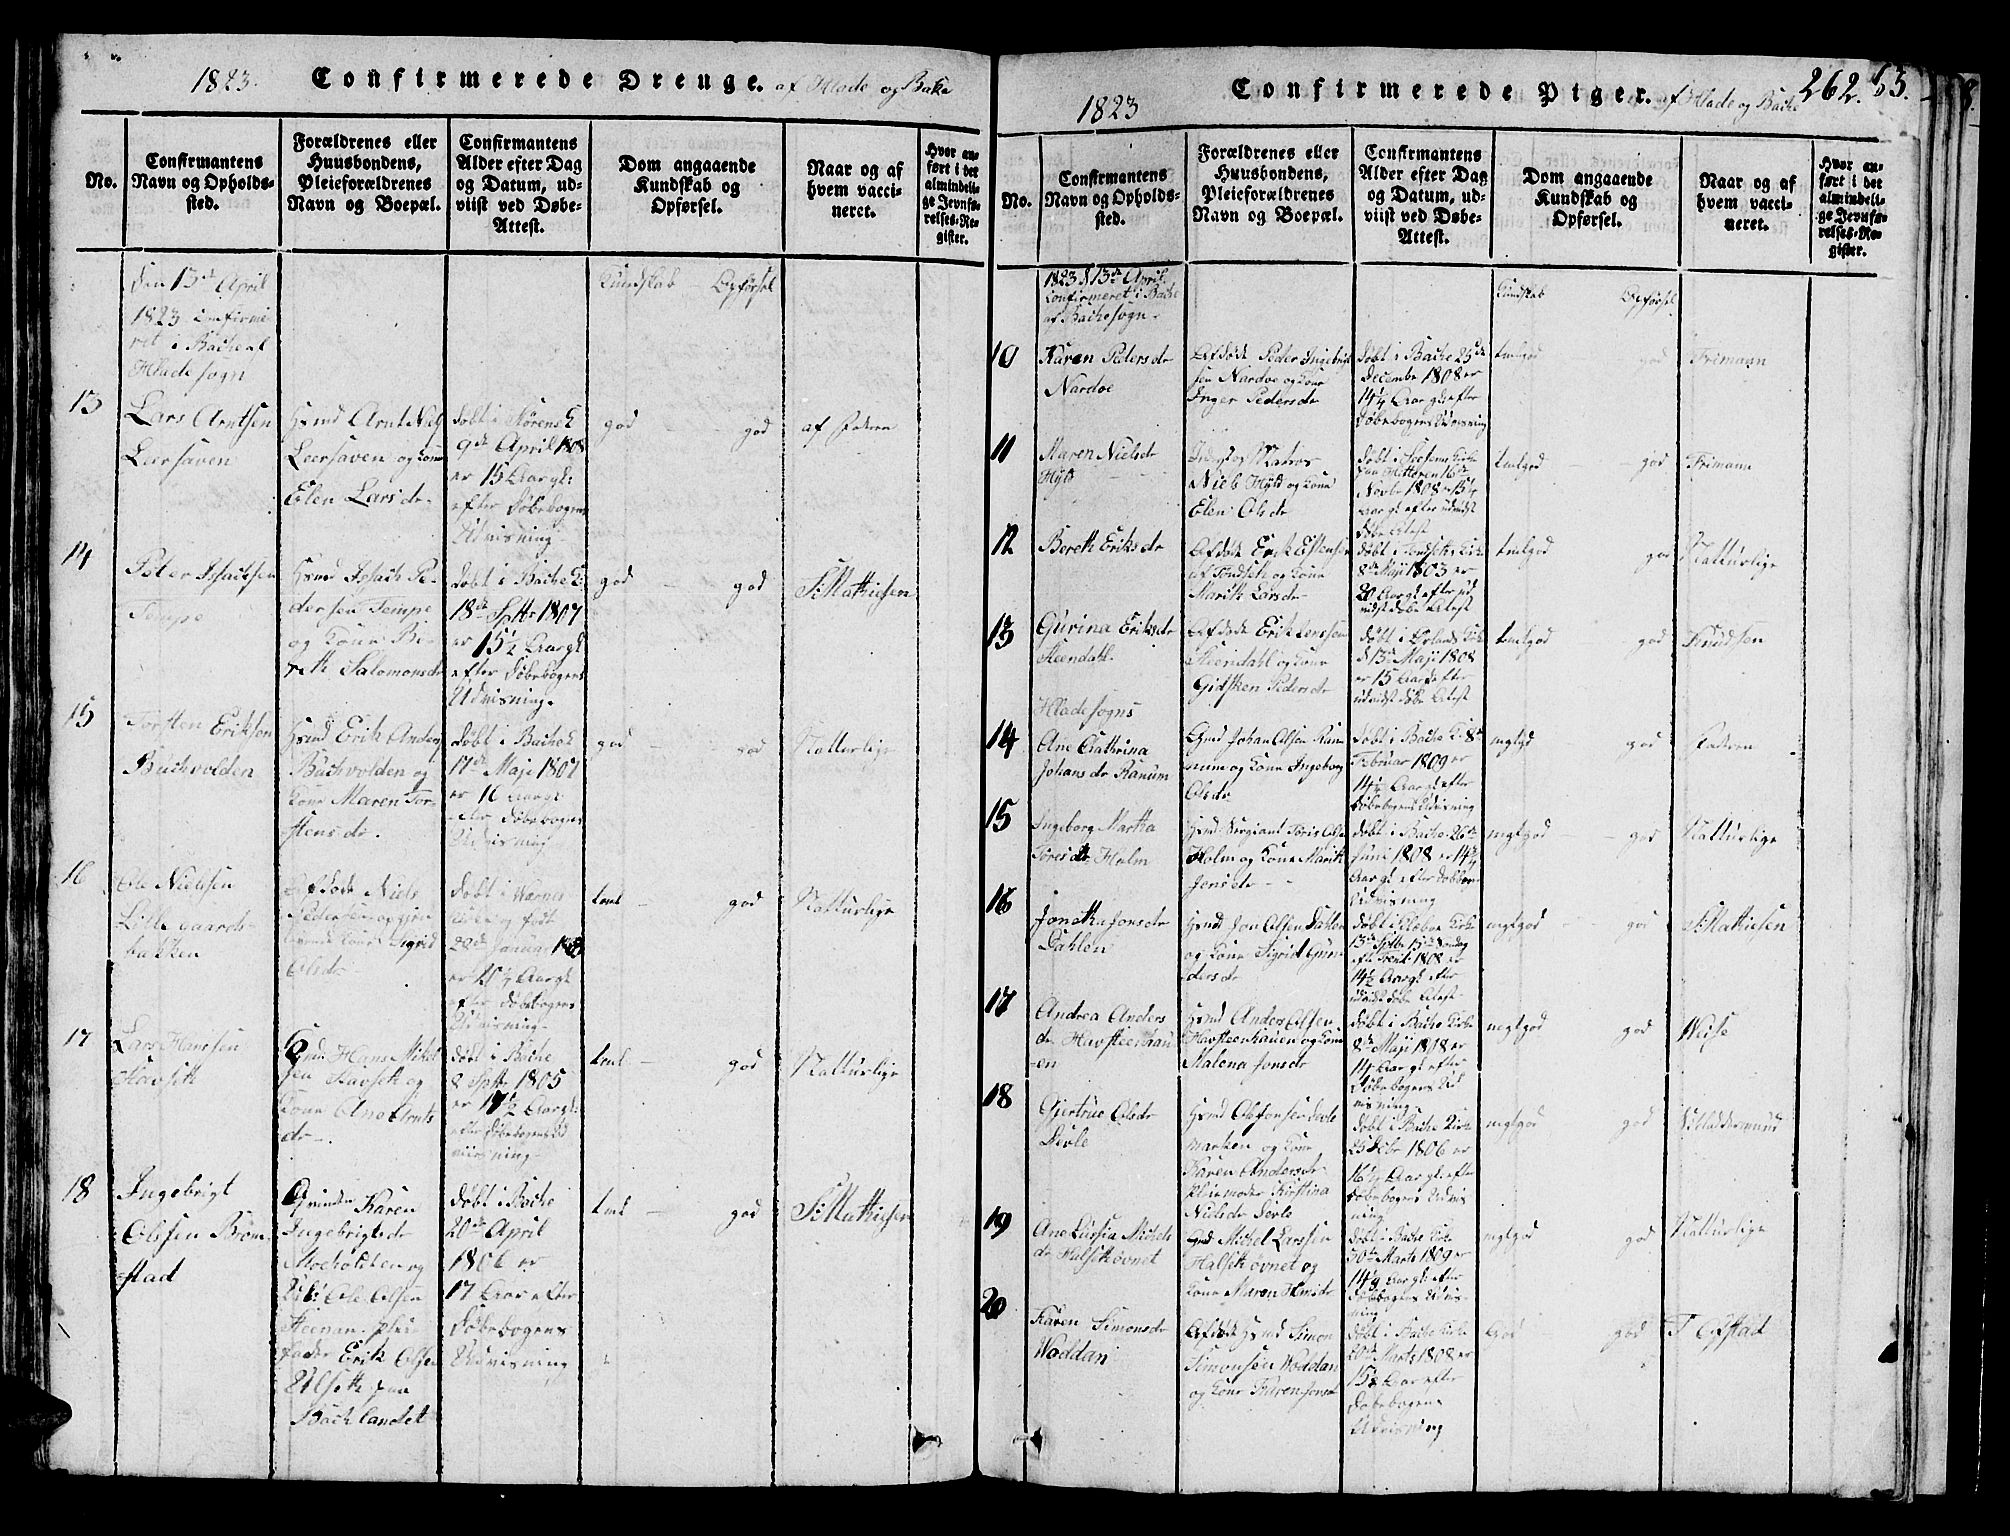 1823. Confirmerede Drenge. af Hlade og Bake
No.
Confirmantens
Navn og Opholds-
sted.
Forældrenes eller
Huusbondens,
Pleieforældrenes
Navn og Boepæl.
Confirmantens
Alder efter Dag
og Datum, ud-
viist ved Døbe-
Attest.
Dom angaaende
Kundskab og
Opførsel.
Naar og af
hvem vacci-
neret.
Hvor an-
ført i det
almindeli-
ge Jevnfø-
relses-Re-
gister.
den 13de April
1823 confirme
ret i Bache al
Hlade sogn
Kundskab - Opførsel
13
Lars Arntsen
Leersaven
Hsmd Arnt Niels
Leersaven og kone
Elen Larsdr.
døbt i
9de April 1808
er 15 Aar gl:
efter Døbebogens
Udvisning
god god
af Faderen
14
Peter Isachsen
Tempe
Hsmd Isach Pe-
dersen Tempe
og kone Be-
reth Salomonsdr
døbt i Bache K:
18de Septbr 1807
er 15½ Aar gl
efter Døbebogens
Udvisning.
god - god
S: Mathiesen
15
Torsten Eriksen
Buchvolden
Hsmd Erik Anders
Buchvolden og
kone Maren Tor-
stensdr.
døbt i Bache K
17de Maji 1807
er 16 Aar gl:
efter Døbebogens
Udvisning
god - god
Natturlige
16
Ole Nielsen
Lillegaards-
bakken
Afdøde Niels
Pedersen og
levende kone Sigrid
Olsdr
døbt i Warnes
og født
Januar
Aar gl
efter Døbebogens
Udvisning
tml - god
Natturlige
17
Lars Hansen
Havseth
Hsmd Hans Mikel
sen Havseth og
kone Ane Arnts
dr.
døbt i Bache
8 Septbr 1805
er 17½ Aar gl:
efter Døbebogens Ud
viisning
tml - god
Natturlige
18
Ingebrigt
Olsen Brom-
stad
Qvinden Karen
Ingebrigtsdr
Moeholden og
Ole Olsen
Steenan. pleie
fader Erik Olsen
Ulseth paa
Bachlandet
døbt i Bache
20de April
1806 er
17 Aar efter
Døbebogens
Udvisning
tml - god
S: Mathiesen
1823 Confirmerede Piger. af Hlade og Bache 262. 65.
No.
Confirmantens
Navn og Opholds-
sted.
Forældrenes eller
Huusbondens,
Pleieforældrenes
Navn og Boepæl.
Confirmantens
Alder efter Dag
og Datum, ud-
viist ved Døbe-
Attest.
Dom angaaende
Kundskab og
Opførsel.
Naar og af
hvem vacci-
neret.
Hvor an-
ført i det
almindeli-
ge Jevnfø-
relses-Re-
gister.
1823 d 13de April
confirmeret i Bache
af Bache sogn.
Kundskab Opførsel
10
Karen Pedersdr
Nardoe
Afdøde Peder Ingebrigt
sen Nardoe og kone
Inger Pedersdr
døbt i Bache 25de
December 1808 er
14¼ Aar gl efter
Døbebogens Udvisning
tmlgod god
Frimann
11
Maren Nielsdr
Hyld
Matros
Niels Hyld og kone
Elen Olsdr
døbt i Kirke
paa Hitteren 16de
Novbr 1808
Aar gl efter udvist
Døbe Attest
tmlgod - god
Frimann
12
Bereth Eriksdr
Afdøde Erik Estensen
af Tondseth og kone
Marith Larsdr
døbt i Tondseths Kirke
8de Maji 1803 er
20 Aar gl efter ud
viist døbe Attest
tmlgod god
Natturlige
13
Gurina Eriksdr
Steendahl
Afdøde Erik Jenssen
Steendahl og kone
Gidsken Pedersdr
døbt i Ørlands Kirke
d 13de Maji 1808
er 15 Aar efter
udvist døbe Attest
tmlgod god
Knudsen
Hladesogns
14
Ane Cathrina
Johansdr Ranum
Johan Olsen Ran
num og kone Ingeborg
Olsdr
døbt i Bache K: 8de
Februar 1809 er
14¼ Aar gl efter
Døbebogens Udvisning
mgtgd god
Faderen
15
Ingeborg Martha
Toresdr Holm
Hsmd Sergiant Toris Olsen
Holm og kone Marith
Jensdr
døbt i Bache 26de
Juni 1808 er 14¾
Aar gl efter døbbo
Udvisning
mgtgod god
Natturlige
16
Joneka Jonsdr
Dahlen
Hsmd Jon Olsen Dahlen
og kone Sigrid Gun
dersdr
døbt i Klæboe Kirke
13de Septbr 13de Søndag
efter Trinit: 1808 er
14½ Aar gl efter
udvist døbe Attest
mgtgod god
S: Mathiesen
17
Andrea Anders
dr Havsteenhau
en
Hsmd Anders Olsen
Havsteenhauen og kone
Malena Jonsdr
døbt i Bache Kirke
8de Maji er
14 Aar gl efter
Døbebogens Ud
visning
megtgod god
Weise
18
Gjertrue Olsdr
Devle
Hsmd Ole Jonsen Devle
marken og kone
Karen Andersdr
Pleiemoder Kirstina
Nielsdr Devle
døbt i Bache Kirke
25 Febr 1806 er
16¼ Aar gl efter
Døbebogens Udvis
ning
mgtgod god
19
Ane Lussia Michels
dr Halsethøvnet
Michel Larssen
Halsethøvnet og
kone Maren Hansdr
døbt i Bache Kirke
30te Marts 1809 er
14¼ Aar gl efter
Døbebogens Udvis-
ning
mgtgod god
Natturlige
20
Karen Simonsdr
Woddan
Afdøde Hsmd Simon
Simonsen Woddan
og kone Karen Jonsd
døbt i Bache Kirke
20de Marts 1808 er
15 Aar efter
Døbebogens
Udvisning
God - god
T Ofstad